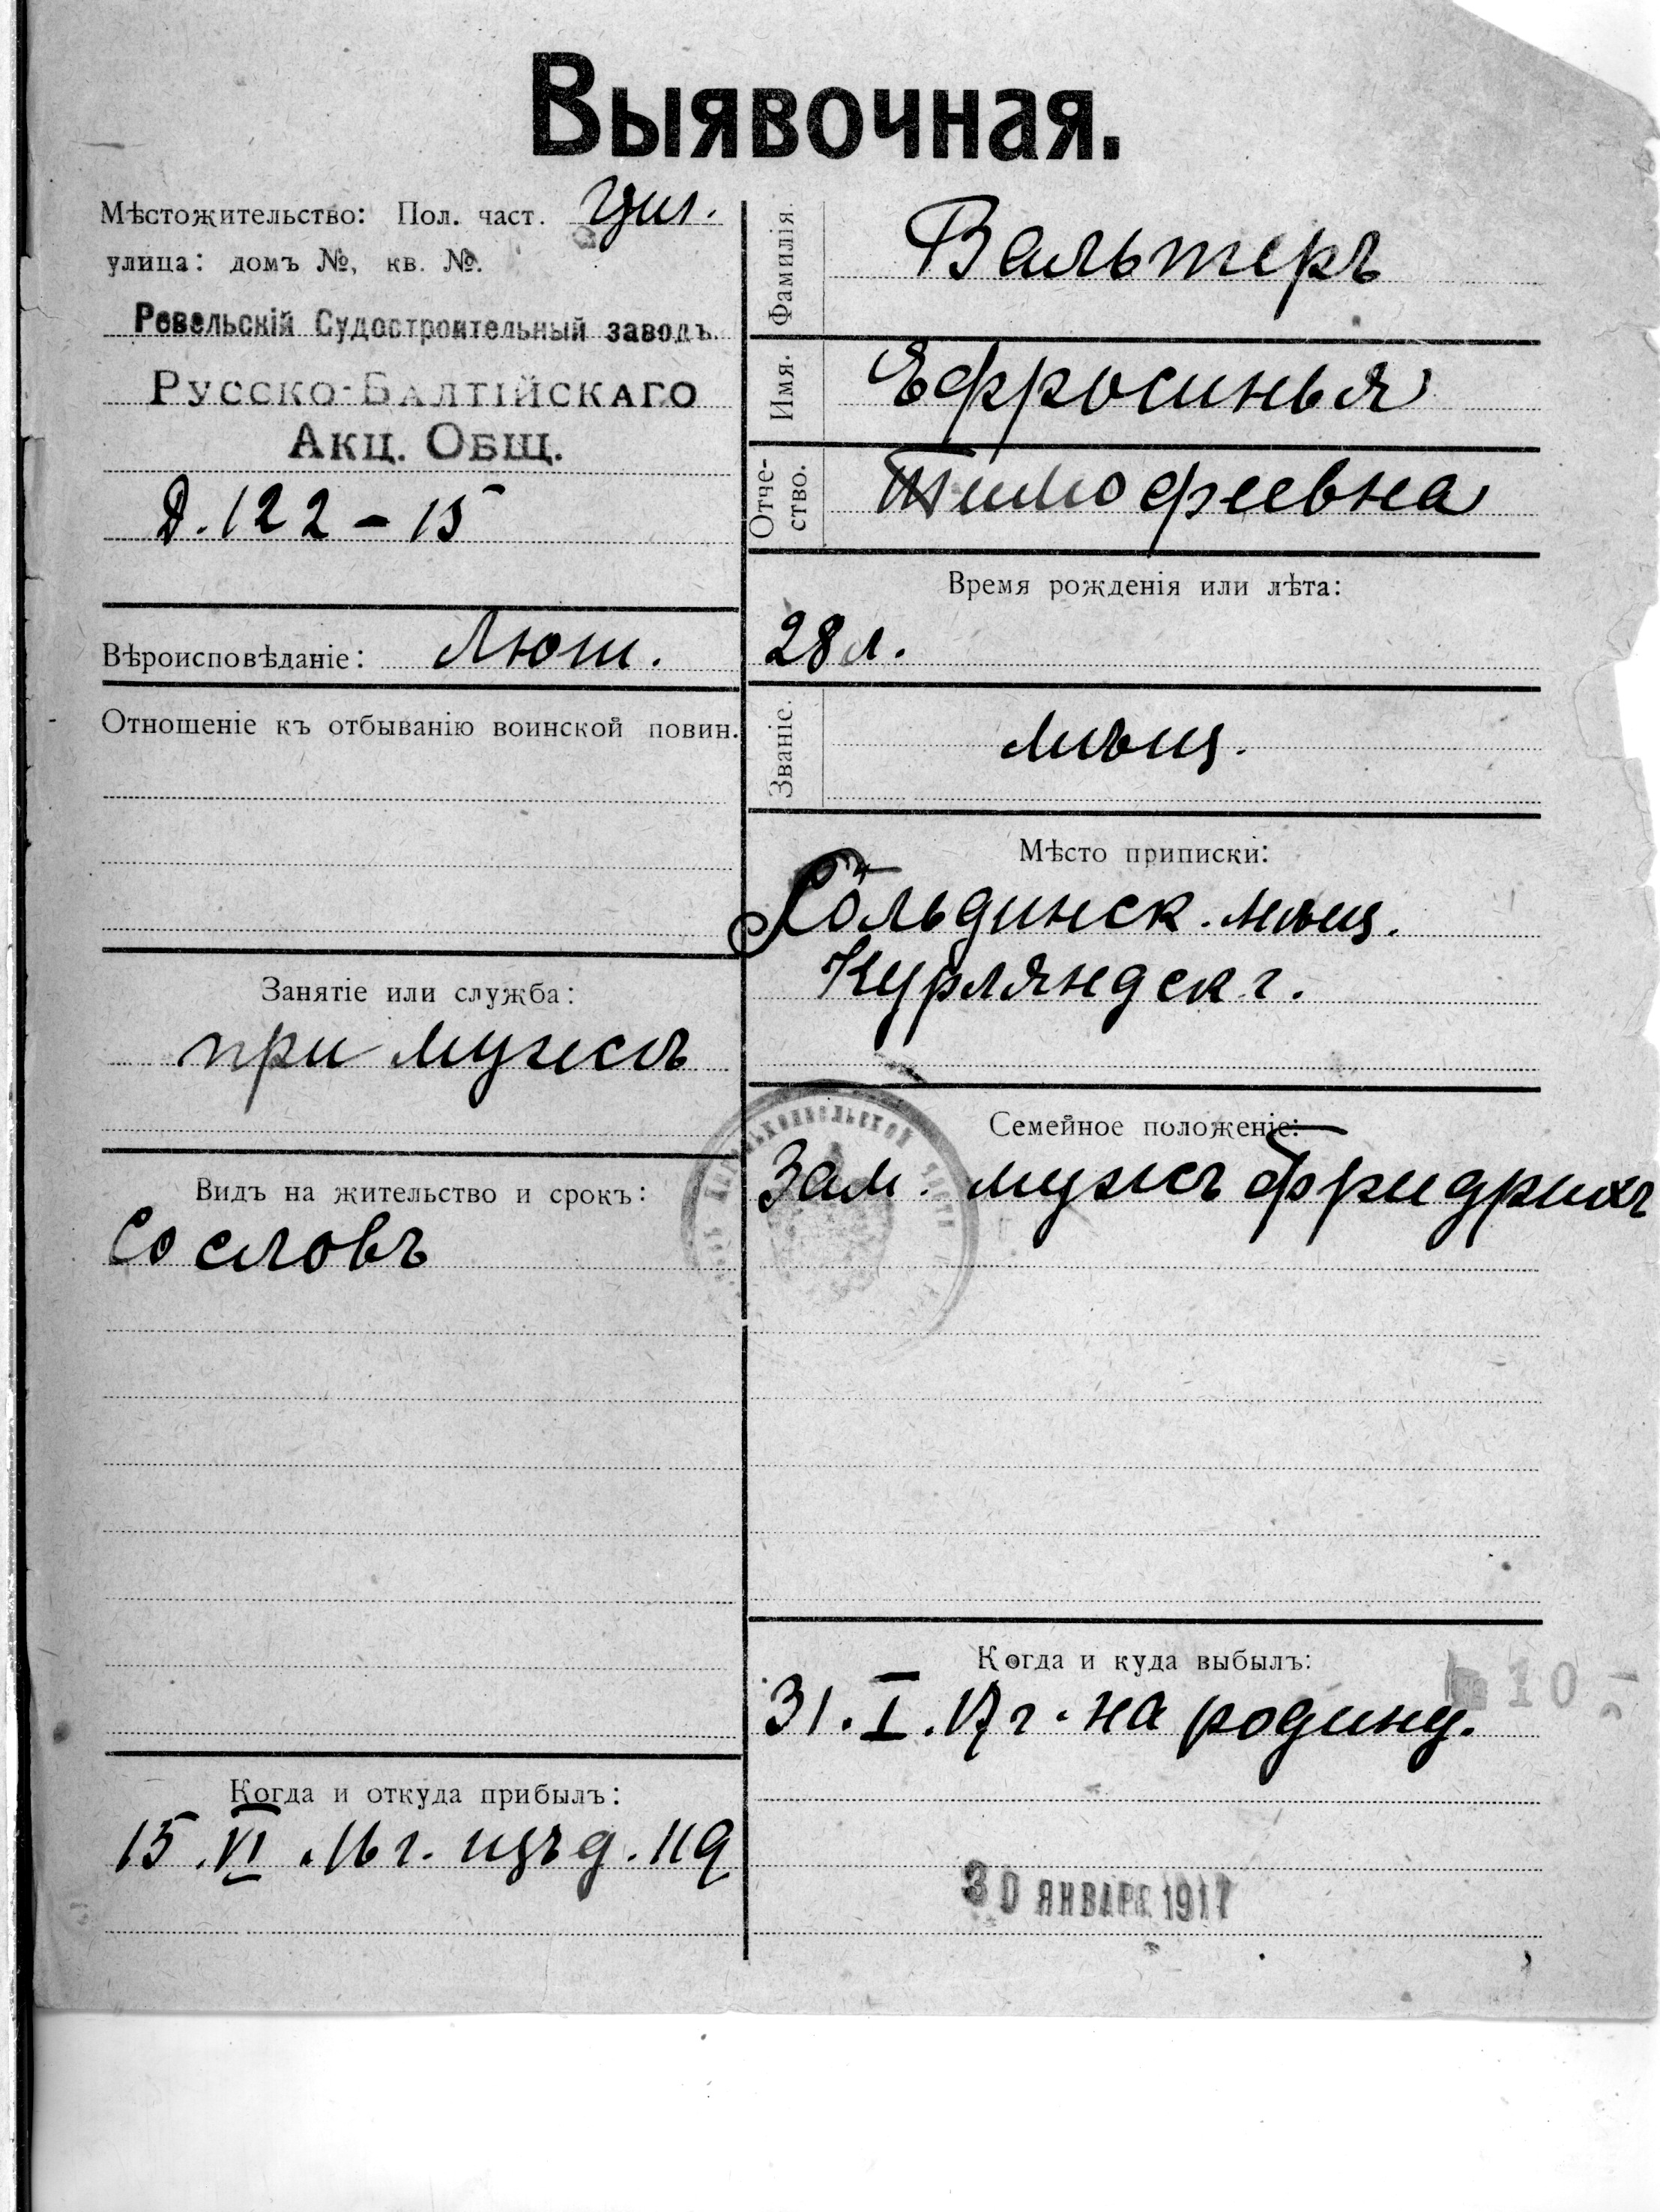 Выявочная.
Мѣстожительство: Пол. част. Цил.
улица: домъ №, кв. №.
Ревельскій Судостроительный заводъ.
Русско-Балтійскаго
Акц. Общ.
Д. 122 - 15
Вѣроисповѣданіе: Лют.
Отношеніе къ отбыванію воинской повин.
Занятіе или служба:
при мужѣ
Видъ на жительство и срокъ:
Со словъ
Когда и откуда прибылъ:
15. VI. 16 г. изъ д. 119
Фамилія. Вальтеръ
Имя. Ефросинья
Отчество. Тимофеевна
Время рожденія или лѣта:
28 л.
Званіе. мѣщ.
Мѣсто приписки:
Гольдинск. мѣщ.
Курляндск г.
Семейное положеніе:
Зам. мужъ Фридрихъ
Когда и куда выбылъ:
31. I. 17 г. на родину.
10
30 ЯНВАРЯ 1917